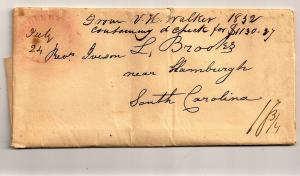 From V. H. Walker 1832
containing a check for $1130.27
July
24
Revd Iveson L, Brooks
near Hamburgh
South Carolina
18 3/4